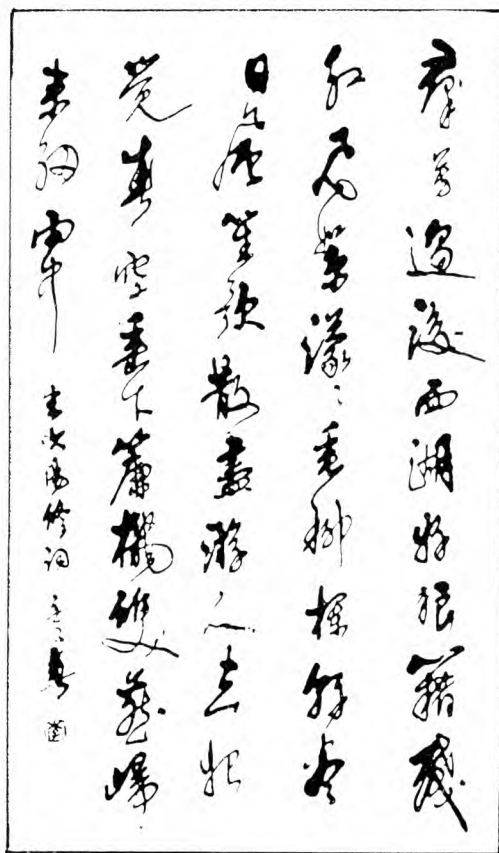 群芳過後西湖好狼籍殘
紅飛絮濛々垂柳欄干盡
日風笙歌散盡游人去始
覺春空垂下簾櫳雙燕歸
來細雨中 書歐陽修詞